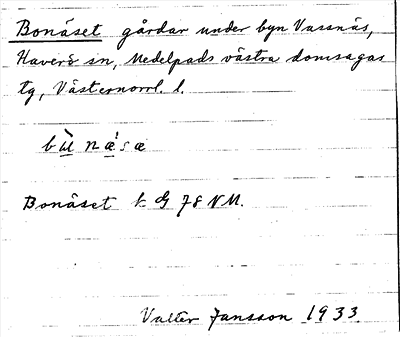 Bonäset gårdar under byn Vassnäs,
Haverö sn, Medelpads västra domsagas
tg, Västernorrl. l.
bù næ´sæ
Bonäset k G 78 NM.
Valter Jansson 1933.